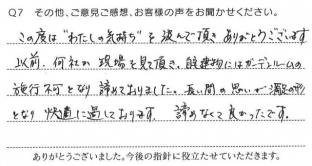 Q7 その他、ご意見ご感想、お客様の声をお聞かせください。
この度は"わたしの気持ち"を汲んで頂きありがとうございます
以前、何社か現場を見て頂き、既建物にはガーデンルームの
施行不可となり諦めておりました。長い間の思いが満足の形
となり快適に過しております。諦めなくて良かったです。
ありがとうございました。今後の指針に役立たせていただきます。